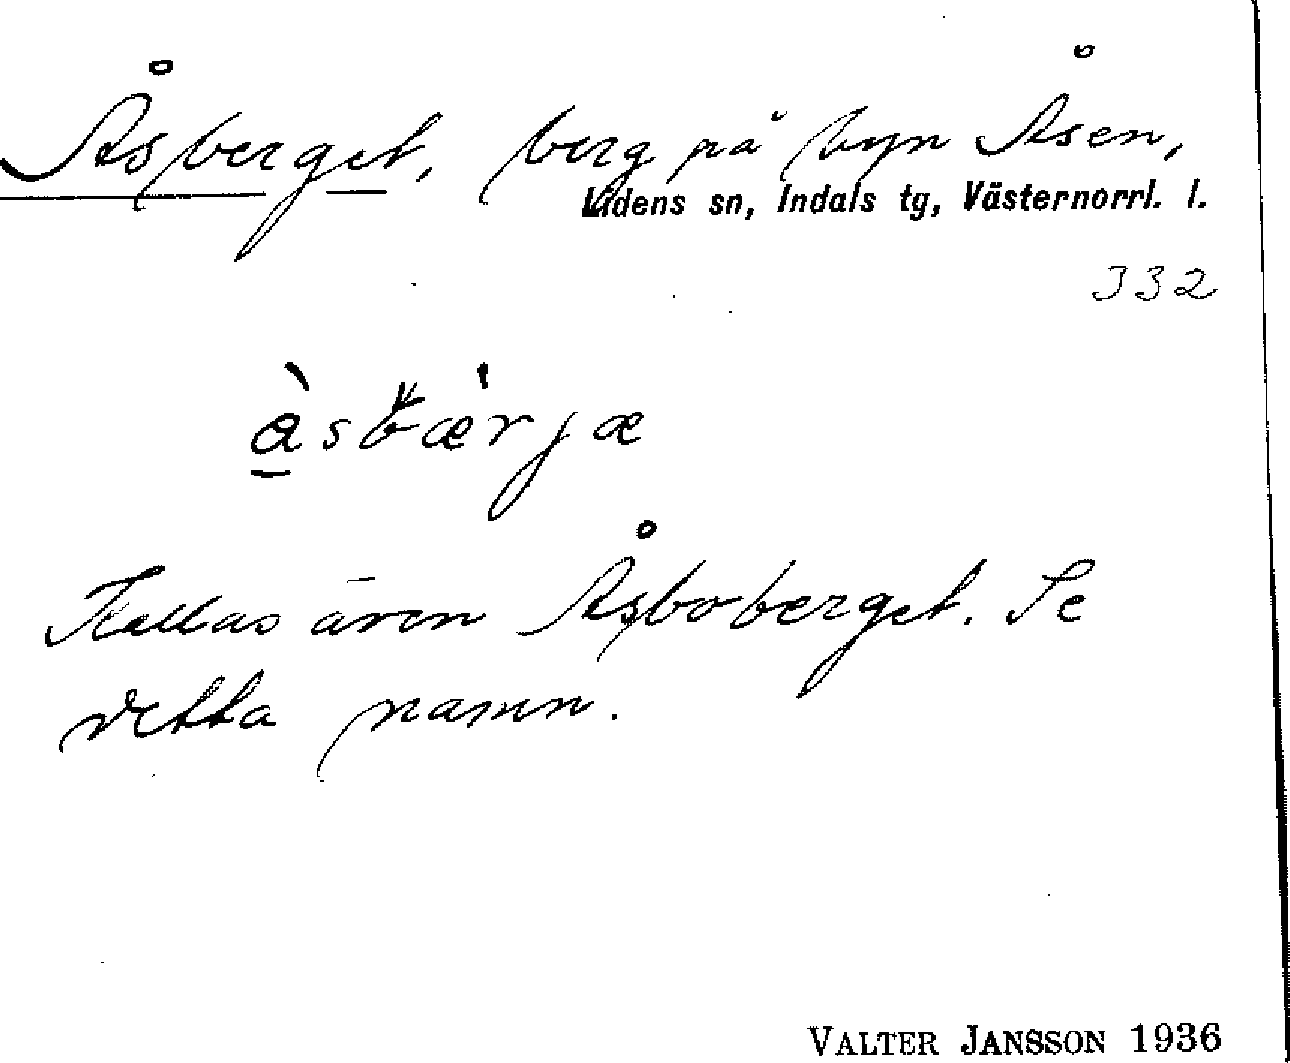 Åsberget, berg på byn Åsen,
Lidens sn, Indals tg, Västernorrl. l.
332
Kallas även Åsboberget. Se
detta namn.
VALTER JANSSON 1936